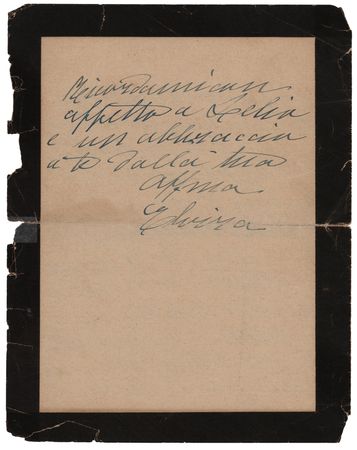 Ricordami con
affetto a Lelio
e un abbraccio
a te dalla tua
affma
Elvira